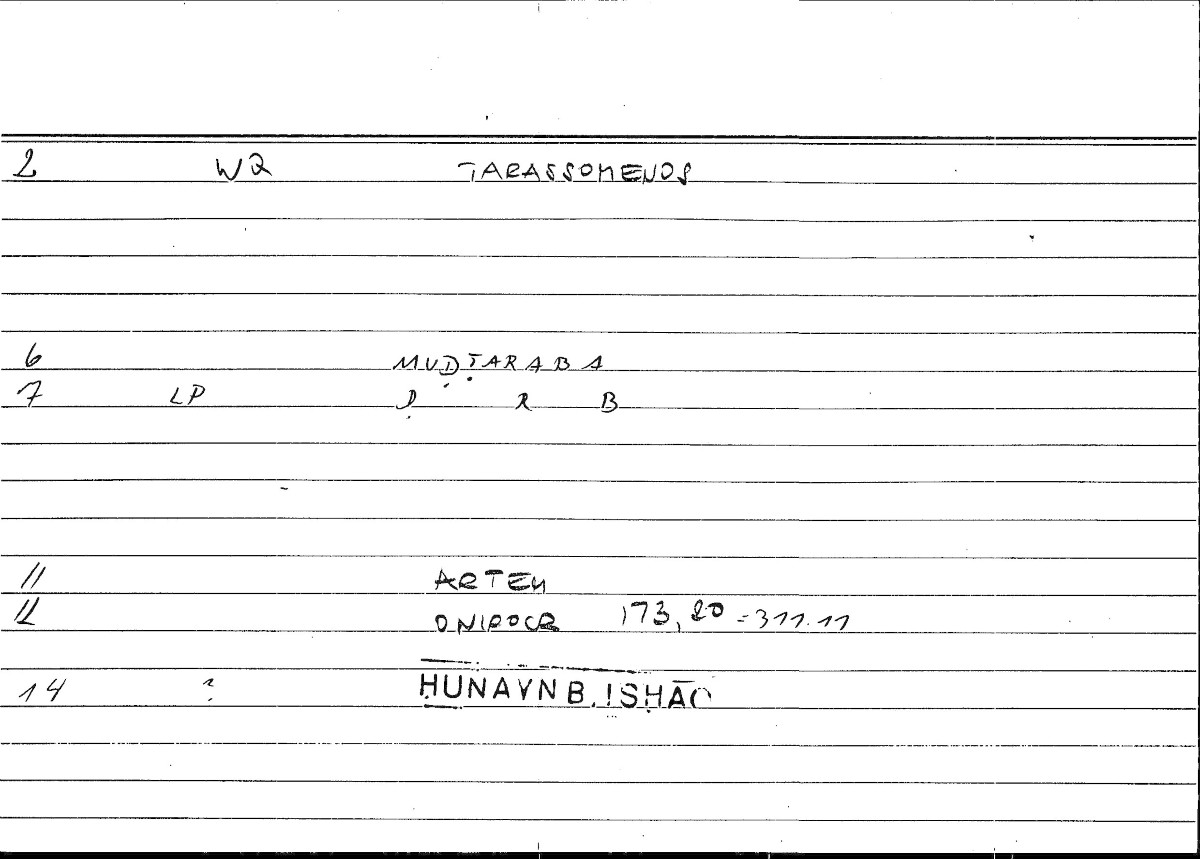 2 WQ TARASSOMENOS
6 MUḌṬARABA
7 LP Ḍ R B
11 ARTEM
12 ONIROCR 173,20 = 311.11
14 ? ḤUNAYN B. ISḤĀQ